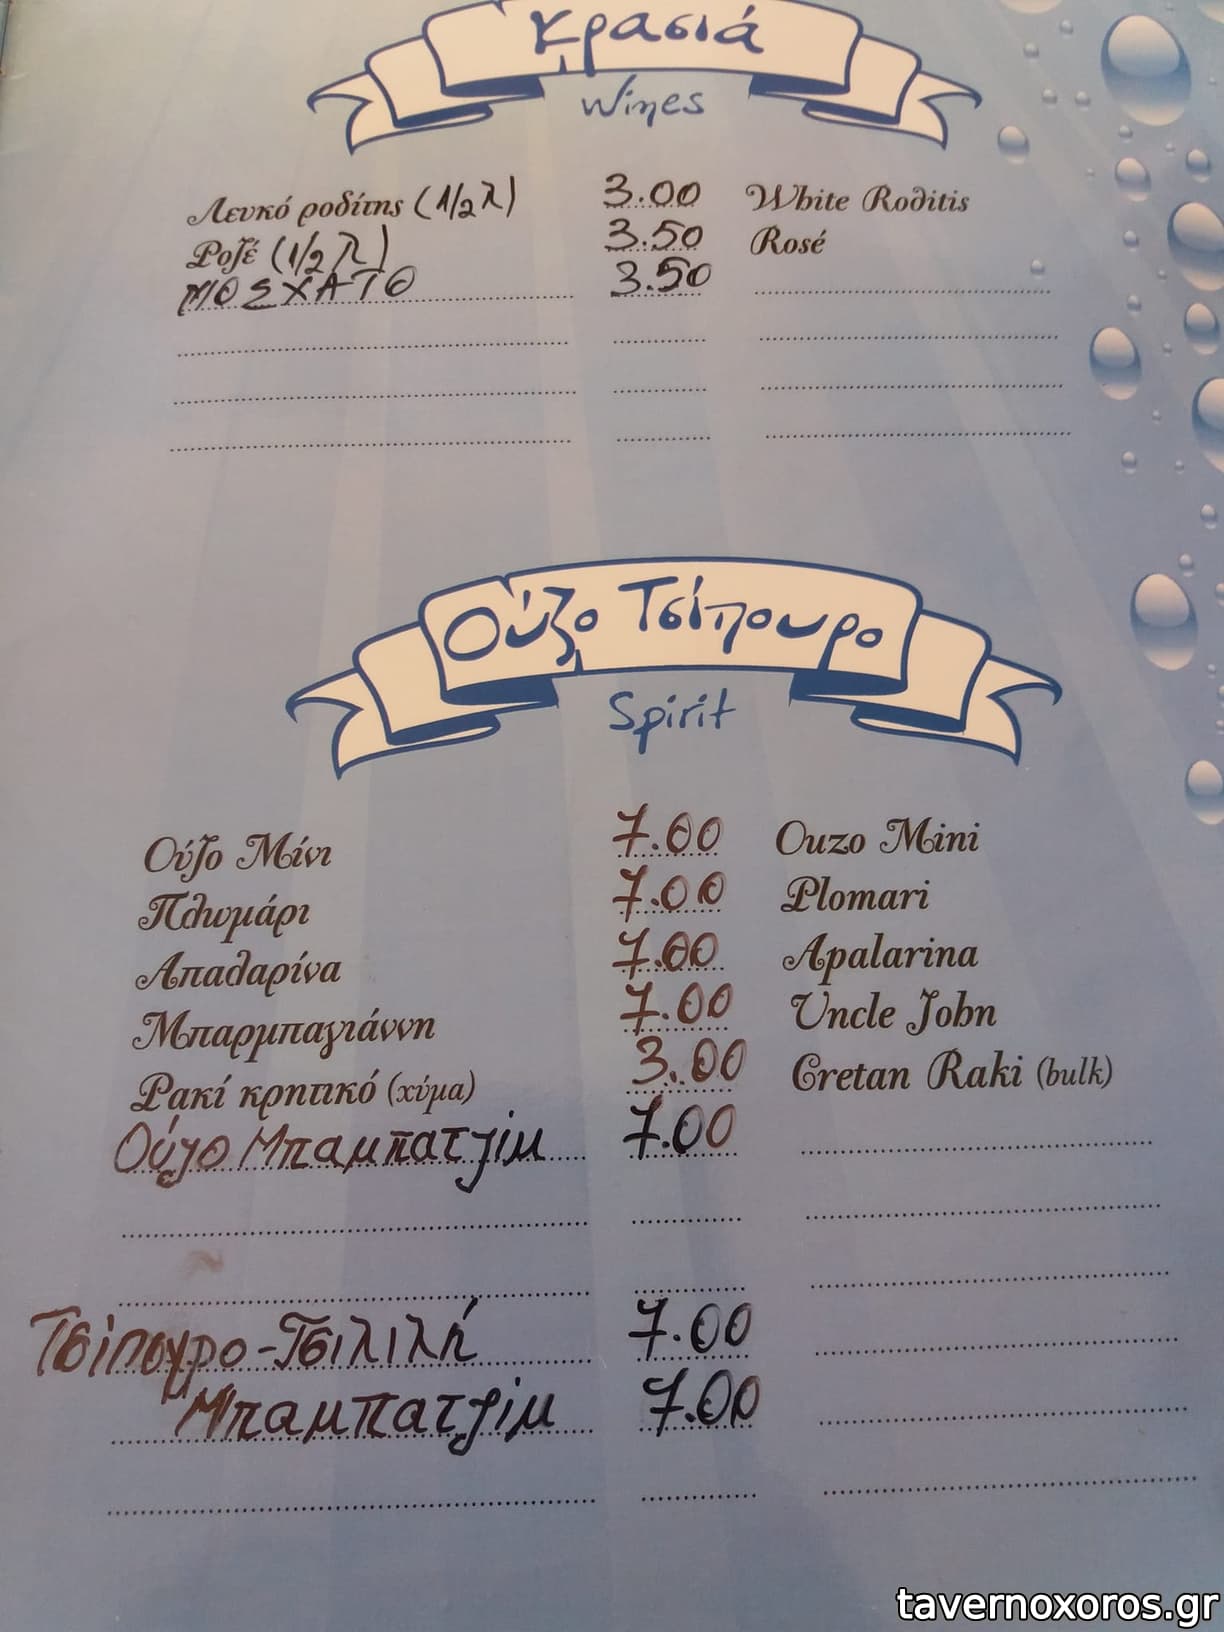 Κρασιά
Wines
Λευκό ροδίτης (1/2 λ) 3.00 White Roditis
Ροζέ (1/2 λ) 3.50 Rosé
ΜΟΣΧΑΤΟ 3.50
Ούζο Τσίπουρο
Spirit
Ούζο Μίνι 7.00 Ouzo Mini
Πλωμάρι 7.00 Plomari
Απαλαρίνα 7.00 Apalarina
Μπαρμπαγιάννη 7.00 Uncle John
Ρακί κρητικό (χύμα) 3.00 Cretan Raki (bulk)
Ούζο Μπαμπατζίμ 7.00
Τσίπουρο-Τσιλιλή 7.00
Μπαμπατζίμ 7.00
tavernoxoros.gr